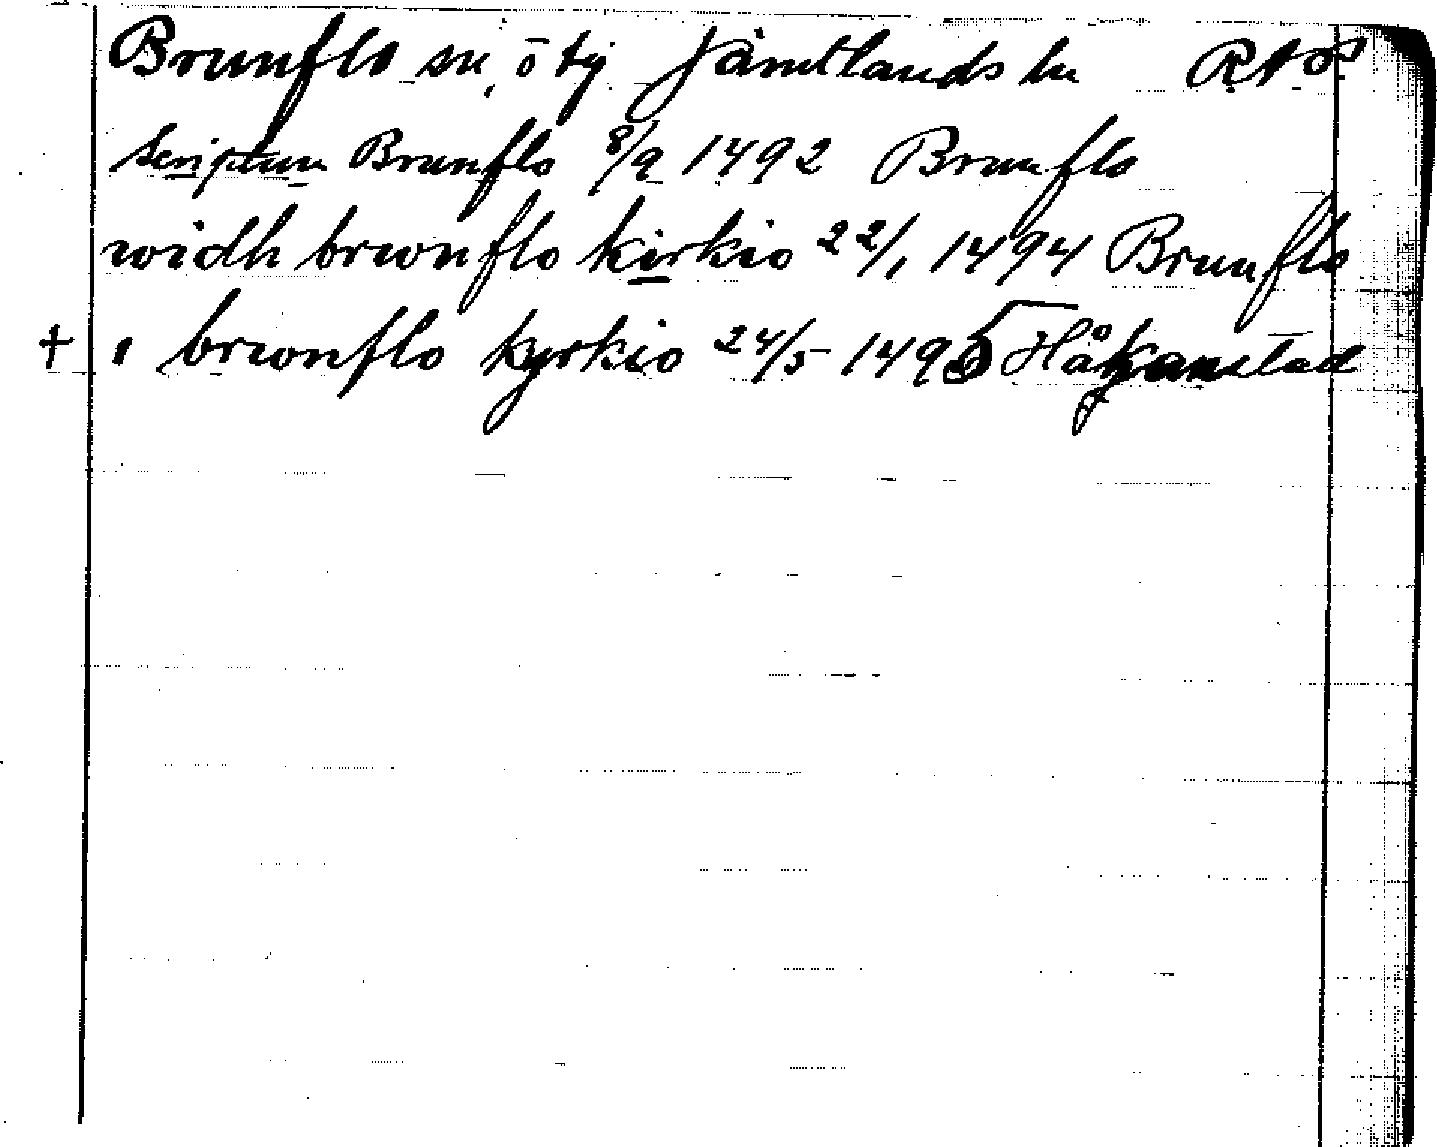 Brunflo sn, ö tg Jämtlands ln RAP
Scriptum Brunflo 8/9 1492 Brunflo
widh brwnflo kirkio 22/1 1494 Brunflo
+ i brwnflo kyrkio 24/5 1495 Håkanstad